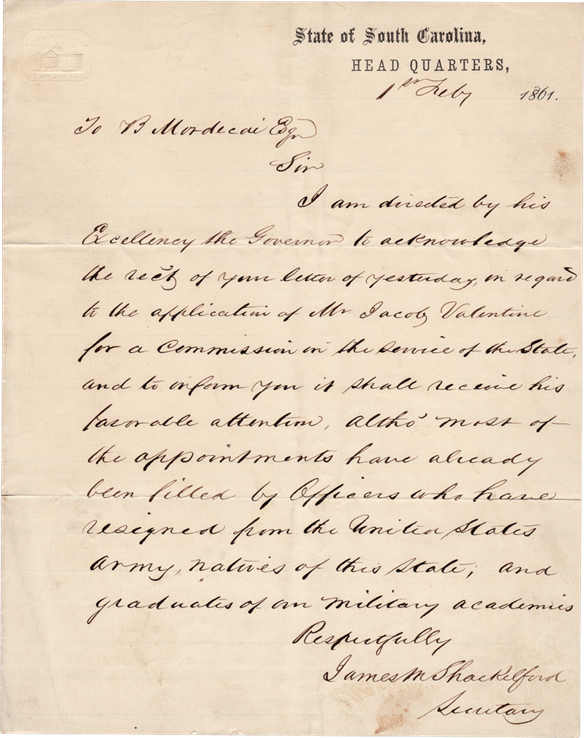 State of South Carolina,
HEAD QUARTERS,
1st Feby 1861.
To B Mordecai Esqr
Sir
I am directed by his
Excellency the Governor to acknowledge
the rect of your letter of yesterday, in regard
to the application of Mr Jacob Valentine
for a Commission in the service of the State,
and to inform you it shall receive his
favorable attention, altho' most of
the appointments have already
been filled by Officers who have
resigned from the United States
Army, natives of this State; and
graduates of our military academies
Respectfully
James M Shackelford
Secretary